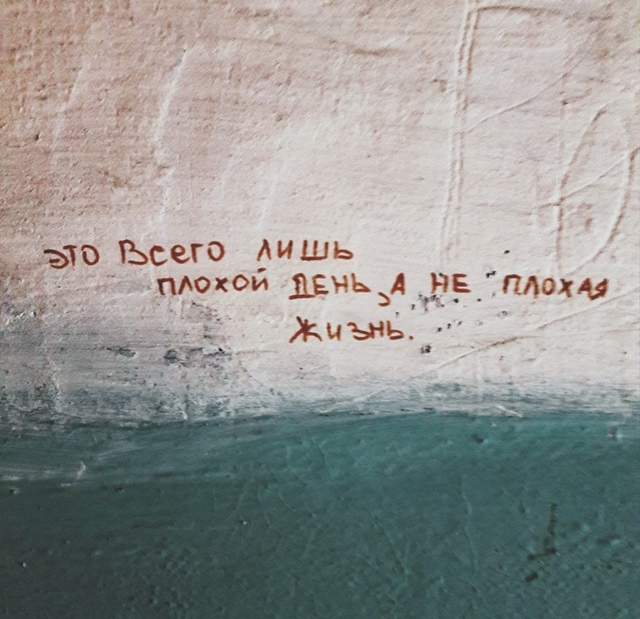 это Всего лишь
плохой день, а не плохая
жизнь.